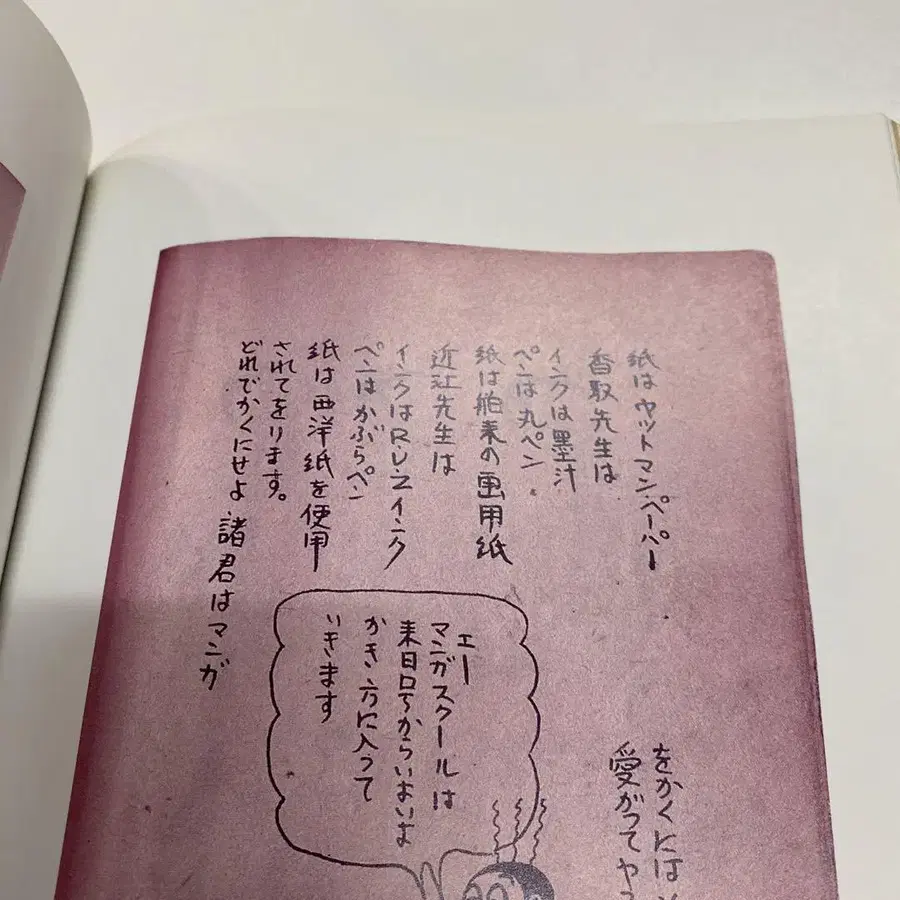 紙はワットマンペーパー
香取先生は
インクは墨汁
ペンは丸ペン
紙は舶来の画用紙
近辻先生は
インクはRUZインク
ペンはかぶらペン
紙は西洋紙を使用
されてをります。
どれでかくにせよ 諸君はマンガ
をかくには
愛がって
エー
マンガスクールは
来月号からいよいよ
かき方に入って
いきます